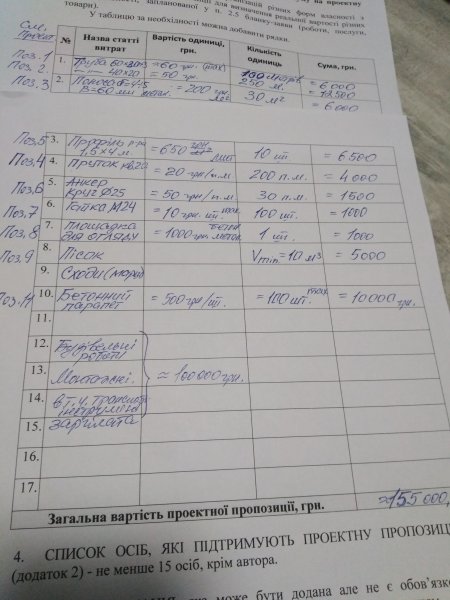 товари).
запланованої у п. 2.5 бланку-заяви (роботи, послуги,
У таблицю за необхідності можна додавати рядки.
№ Назва статті витрат Вартість одиниці, грн. Кількість одиниць Сума, грн.
Поз. 1 1. Труба = 60 грн (max) 6000
Поз. 2. 40×20 = 50 грн. 250 м. = 12500
Поз. 3 2. = 200 грн. 30 м² = 6000
Поз.5 3. Профіль 1,5×4 м. = 650 грн/шт 10 шт. = 6500
Поз.4 4. Пруток кв.20 = 20 грн/п.м 200 п.м. = 4000
Поз.6 5. Анкер круг Ø25 = 50 грн/п.м 30 п.м. = 1500
Поз.7 6. Гайка М24 = 10 грн. шт. max 100 шт. = 1000
Поз. 8 7. Площадка для огляду = 1000 грн. 1 шт. = 1000
Поз.9 8. Пісок Vmin = 10 м³ = 5000
9. Сходи
Поз.11 10. Бетонний парапет = 500 грн/шт. = 100 шт. max = 10000 грн.
11.
12. Будівельні роботи
13. Монтажні. ≈ 100000 грн.
14. в т.ч. трансп.
15. зарплата
16.
17.
Загальна вартість проектної пропозиції, грн. ≈155000,
4. СПИСОК ОСІБ, ЯКІ ПІДТРИМУЮТЬ ПРОЕКТНУ ПРОПОЗИЦ
(додаток 2) - не менше 15 осіб, крім автора.
може бути додана але не є обов'язко